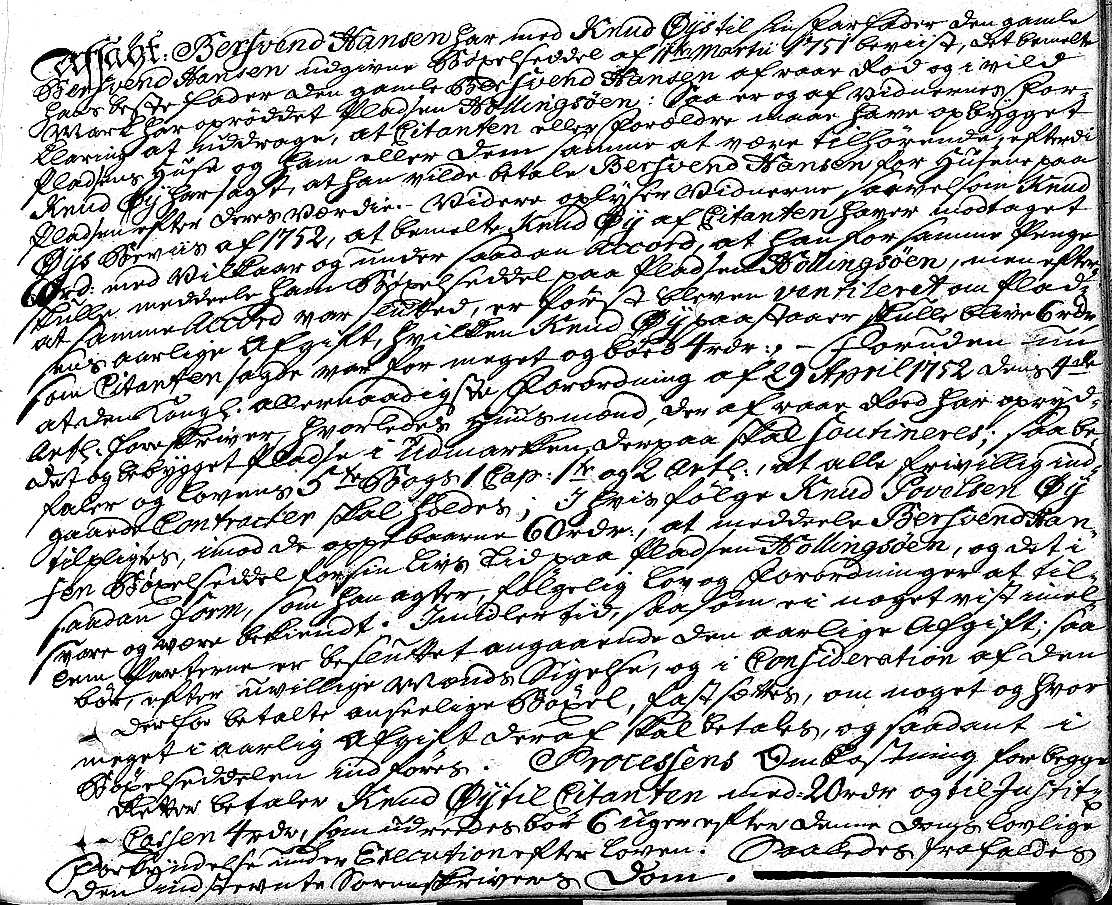 Afsagt: Bersvend Hansen har med Knud Øys til sin Farfader den gamle
Bersvend Hansen udgivne Bøxelseddel af 11te Martii 1751 beviist, det bemelte
hans beste Fader den gamle Bersvend Hansen af raae Rod og i vild
Mark har oprøddet Pladsen Hollingsøen: Saa er og af Vidnernes For-
klaring at uddrage, at Citanten eller Forældre maae have opbygget
Pladsens Huse og ham eller dem samme at være tilhørende, efterdi
Knud Øy har sagt, at han vilde betale Bersvend Hansen for Husene paa
Pladsen efter deres Værdie. Videre oplyser Vidnerne saavelsom Knud
Øys Beviis af 1752, at bemelte Knud Øy af Citanten haver modtaget
60 rd: med Vilkaar og under saadan Accord, at han for samme Penge
skulle meddeele ham Bøxelseddel paa Pladsen Hollingsøen, men efter
at samme Accord var slutted, er først bleven ventileret om Plad-
sens aarlige Afgift, hvilken Knud Øy paastaaer skulle blive 6 rdr
som Citanten sagde var for meget og bød 4 rdr: ; - Foruden nu
at den Kongl: allernaadigste Forordning af 29 April 1752 dens 4de
Artl: foreskriver, hvorledes Huusmænd, der af raae Roed har opryd-
det og bebygget Pladse i Udmarken, derpaa skal soutineres; saa be-
faler og Lovens 5te Bogs 1 Cap: 1te og 2 Artl:, at alle frivillig ind-
gaaede Contracter skal holdes; I hvis følge Knud Povelsen Øy
tilpliges, imod de oppebaarne 60 rdr:, at meddeele Bersvend Han-
sen Bøxelseddel for sin Livs Tid paa Pladsen Hollingsøen, og det i
saadan Form, som han agter, følgelig Lov og Forordninger at til-
svare og være bekiendt. Imidlertid, saasom ei noget vist imel-
lem Parterne er besluttet angaaende den aarlige Afgift; saa
bør, efter uvillige Mænds Sigelse, og i Consideration af den
derfor betalte anseelige Bøxel, fastsættes, om noget og hvor
meget i aarlig Afgift deraf skal betales, og saadant i
Bøxelseddelen indføres. Processens Omkostning for begge
Retter betaler Knud Øy til Citanten med 20 rdr og til Justitz
Cassen 4 rdr, som udreedes bør 6 uger efter denne Doms lovlige
Forkyndelse under Execution efter Loven. Saaledes frafaldes
den indstevnte Sorenskrivers Dom.